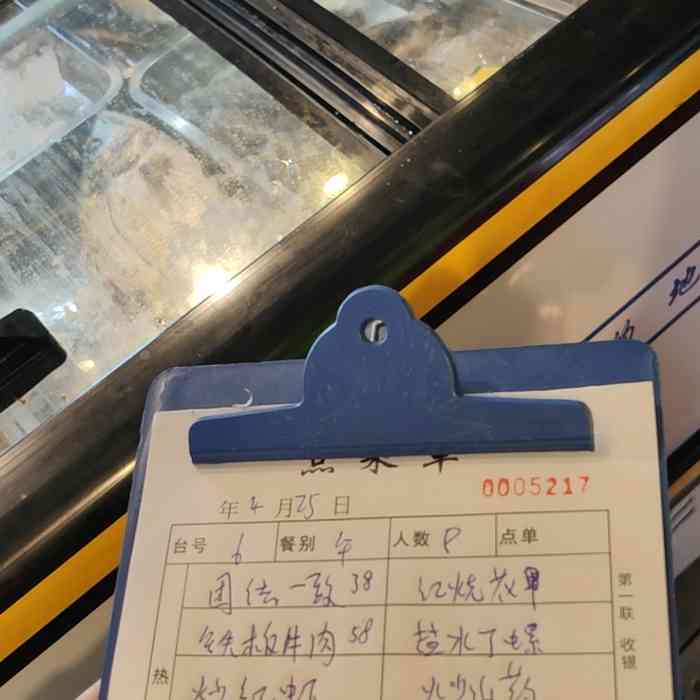 点菜单
0005217
年4月25日
台号 6 餐别 午 人数 8 点单
团结一致 38 红烧
铁板牛肉 58 盐水丁螺
炒红虾 火少山药
热
第一联 收银
地